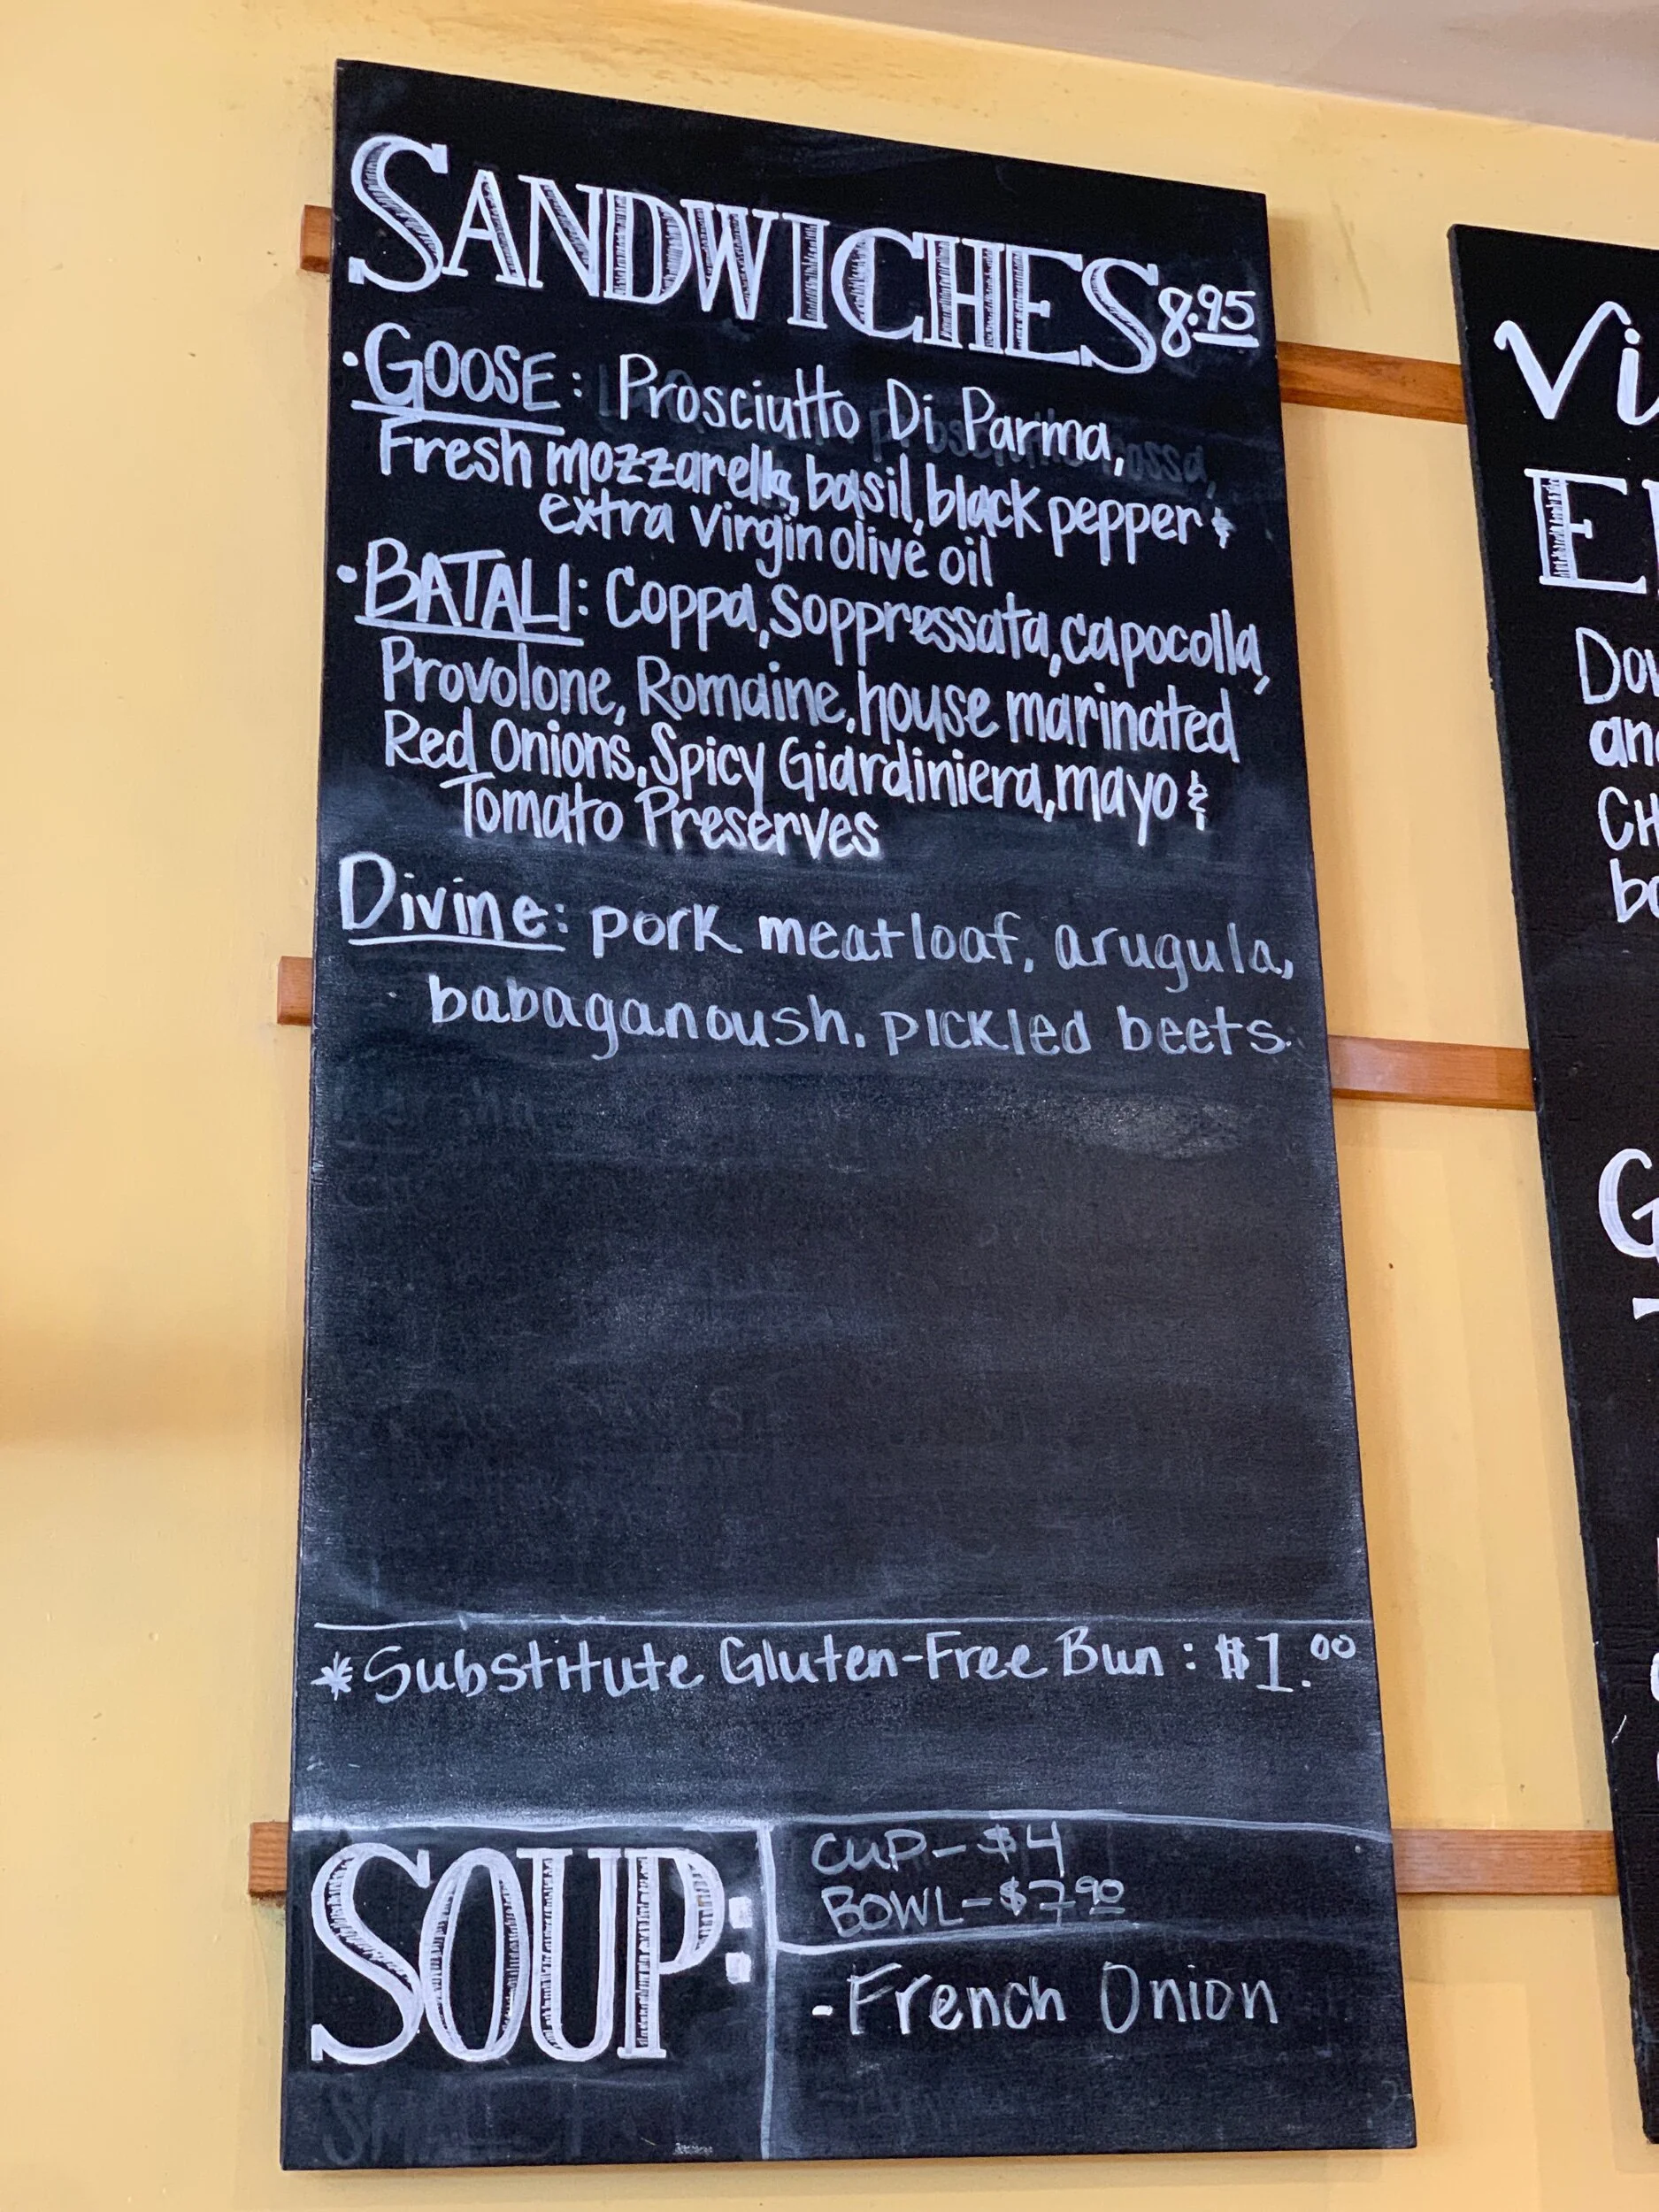 SANDWICHES 8.95
• GOOSE: Prosciutto Di Parma,
Fresh mozzarella, basil, black pepper &
extra virgin olive oil
• BATALI: Coppa, Soppressata, capocolla,
Provolone, Romaine, house marinated
Red Onions, Spicy Giardiniera, mayo &
Tomato Preserves
Divine: pork meatloaf, arugula,
babaganoush. pickled beets.
* Substitute Gluten-Free Bun: $1.00
SOUP:
CUP- $4
BOWL- $7.90
- French Onion